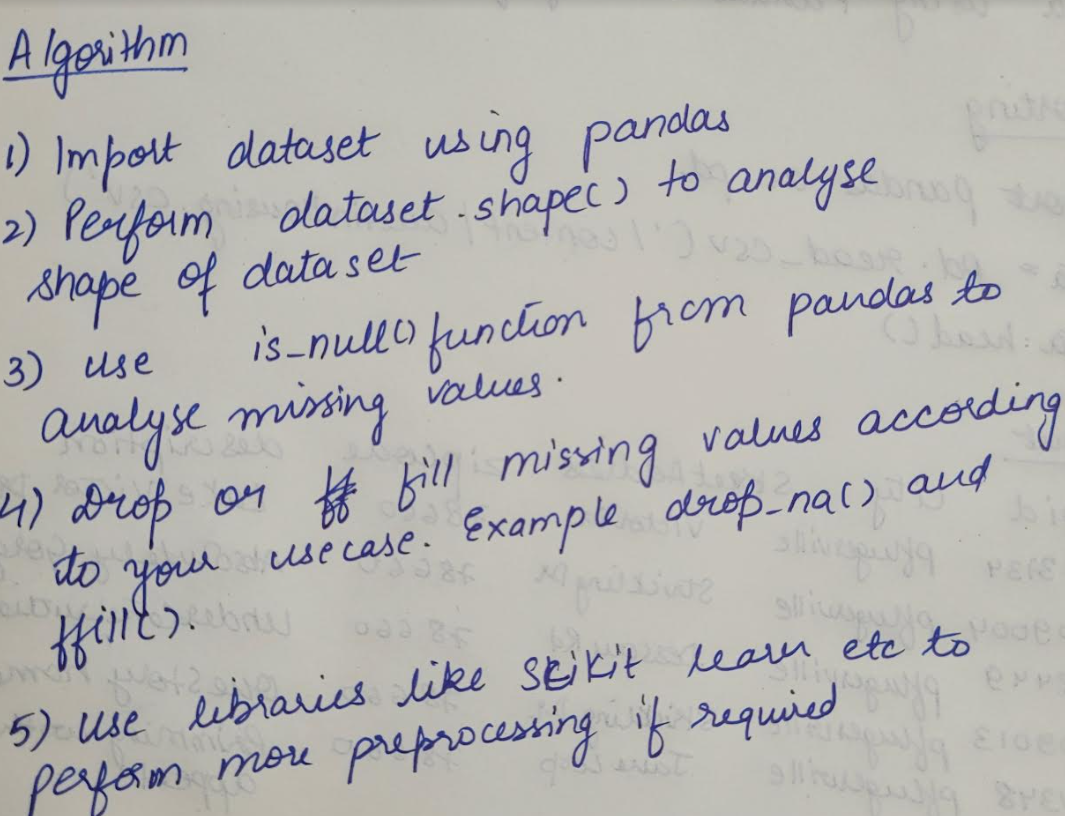 Algorithm
1) Import dataset using pandas
2) Perform dataset.shape() to analyse
shape of dataset
3) use is_null() function from pandas to
analyse missing values.
4) Drop or fill missing values according
to your usecase. Example drop_na() and
ffill().
5) Use libraries like Scikit learn etc to
perform more preprocessing if required